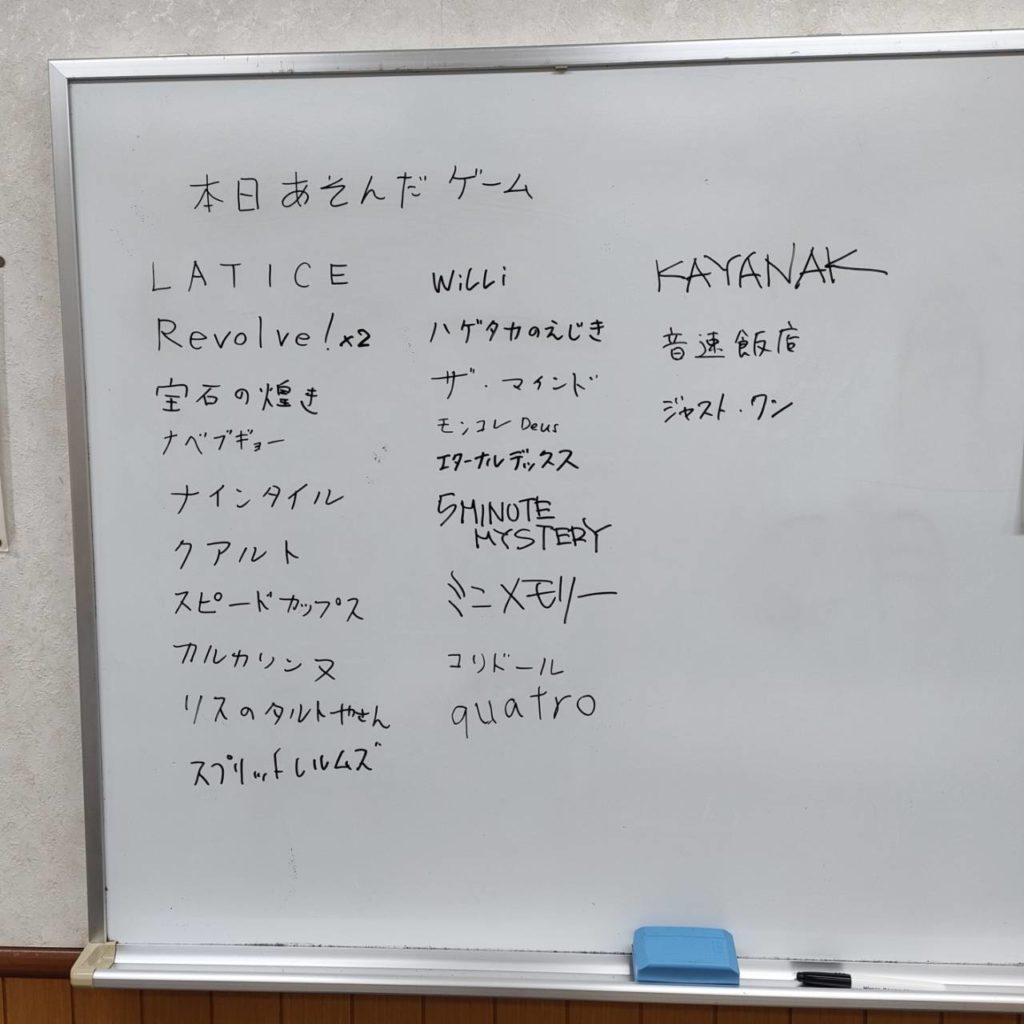 本日あそんだゲーム
LATICE
Revolve!x2
宝石の煌き
ナベブギョー
ナインタイル
クアルト
スピードカップス
カルカソンヌ
リスのタルトやさん
スプリットレルムズ
WiLLi
ハゲタカのえじき
ザ・マインド
モンコレ Deus
エターナルデックス
5MINOTE
MYSTERY
ミニメモリー
コリドール
quatro
KAYANAK
音速飯店
ジャスト・ワン